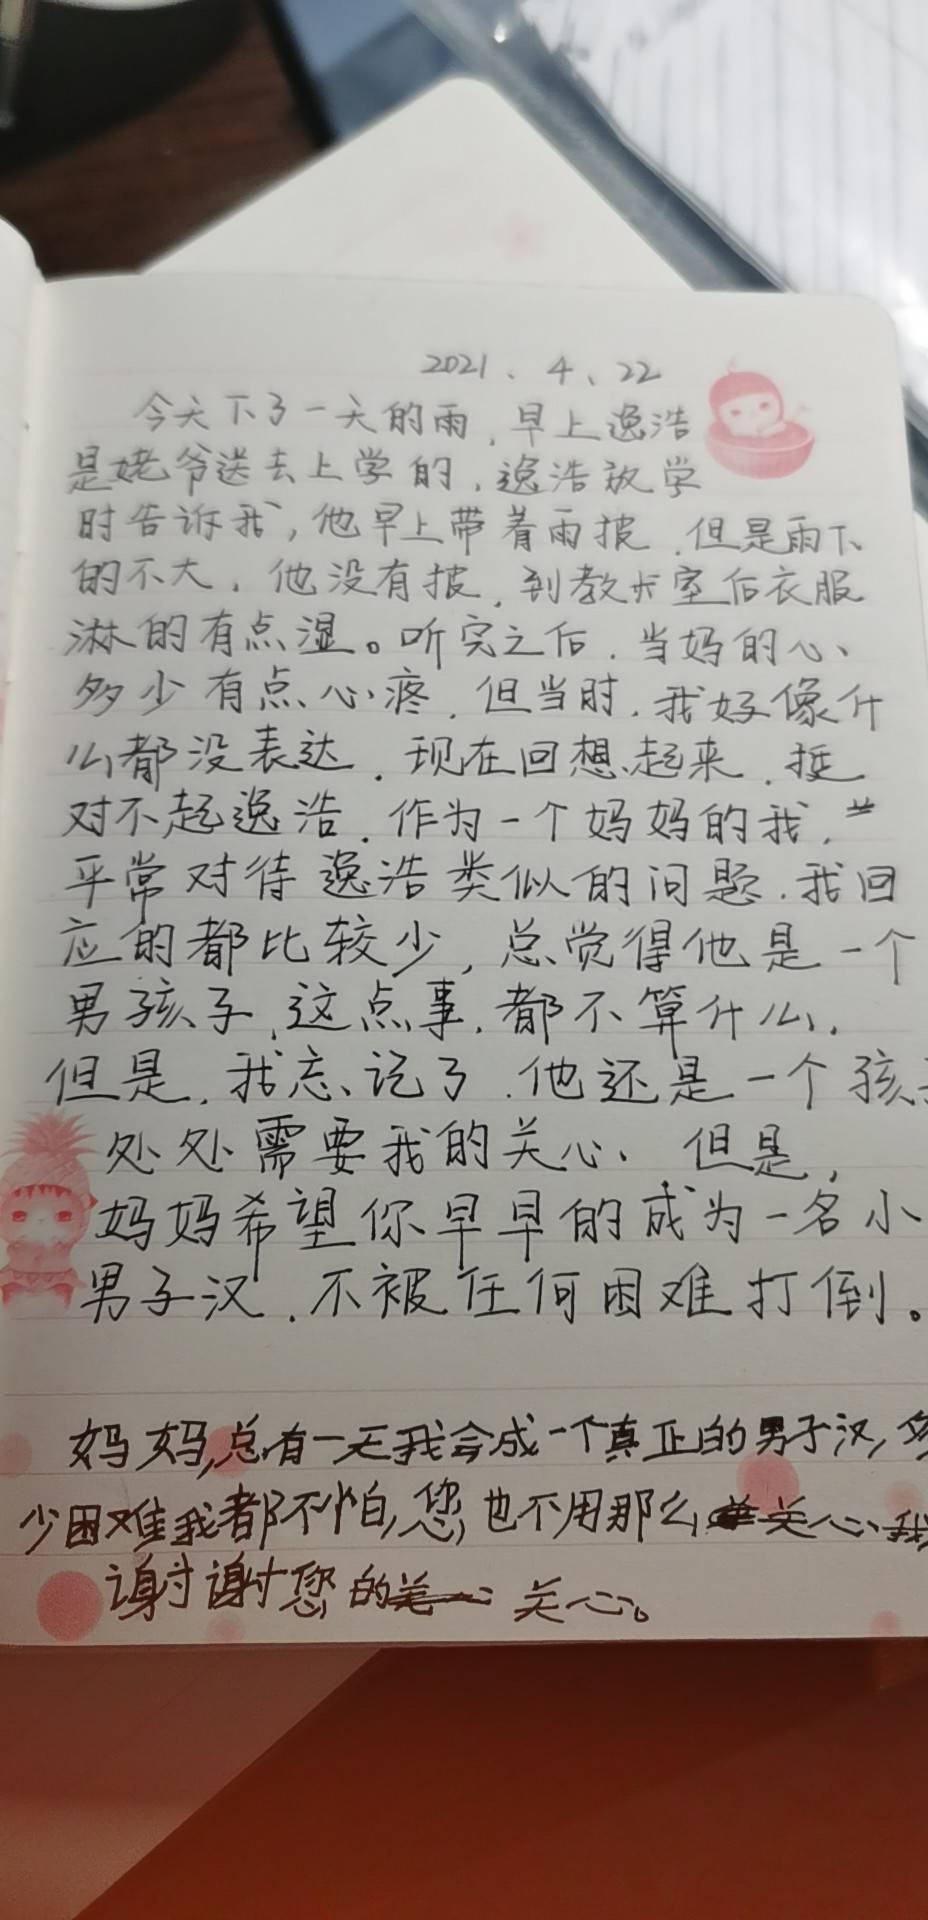 2021、4、22
今天下了一天的雨，早上逸浩
是姥爷送去上学的，逸浩放学
时告诉我，他早上带着雨披，但是雨下
的不大，他没有披，到教室后衣服
淋的有点湿。听完之后，当妈的心、
多少有点心疼，但当时，我好像什
么都没表达，现在回想起来，挺
对不起逸浩，作为一个妈妈的我，
平常对待逸浩类似的问题，我回
应的都比较少，总觉得他是一个
男孩子，这点事，都不算什么，
但是，我忘记了，他还是一个孩子
处处需要我的关心、但是，
妈妈希望你早早的成为一名小
男子汉，不被任何困难打倒。
妈妈，总有一天我会成一个真正的男子汉，多
少困难我都不怕，您也不用那么关心我
谢谢您的关心。